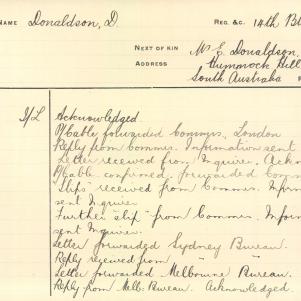 NAME Donaldson, D. REG. &C. 14th B
NEXT OF KIN Mr E. Donaldson,
ADDRESS Hummock Hill
South Australia
I/L Acknowledged.
P/Cable forwarded Commrs. London
Reply from Commrs. Information sent
Letter received from Inquirer. Ackn
P/Cable confirmed. forwarded Comm
"Slips" received from Commrs. Inform
sent Inquirer
Further "slip" from Commrs. Inform
sent Inquirer.
Letter forwarded Sydney Bureau.
Reply received from "
Letter forwarded Melbourne Bureau.
Reply from Melb. Bureau. Acknowledged